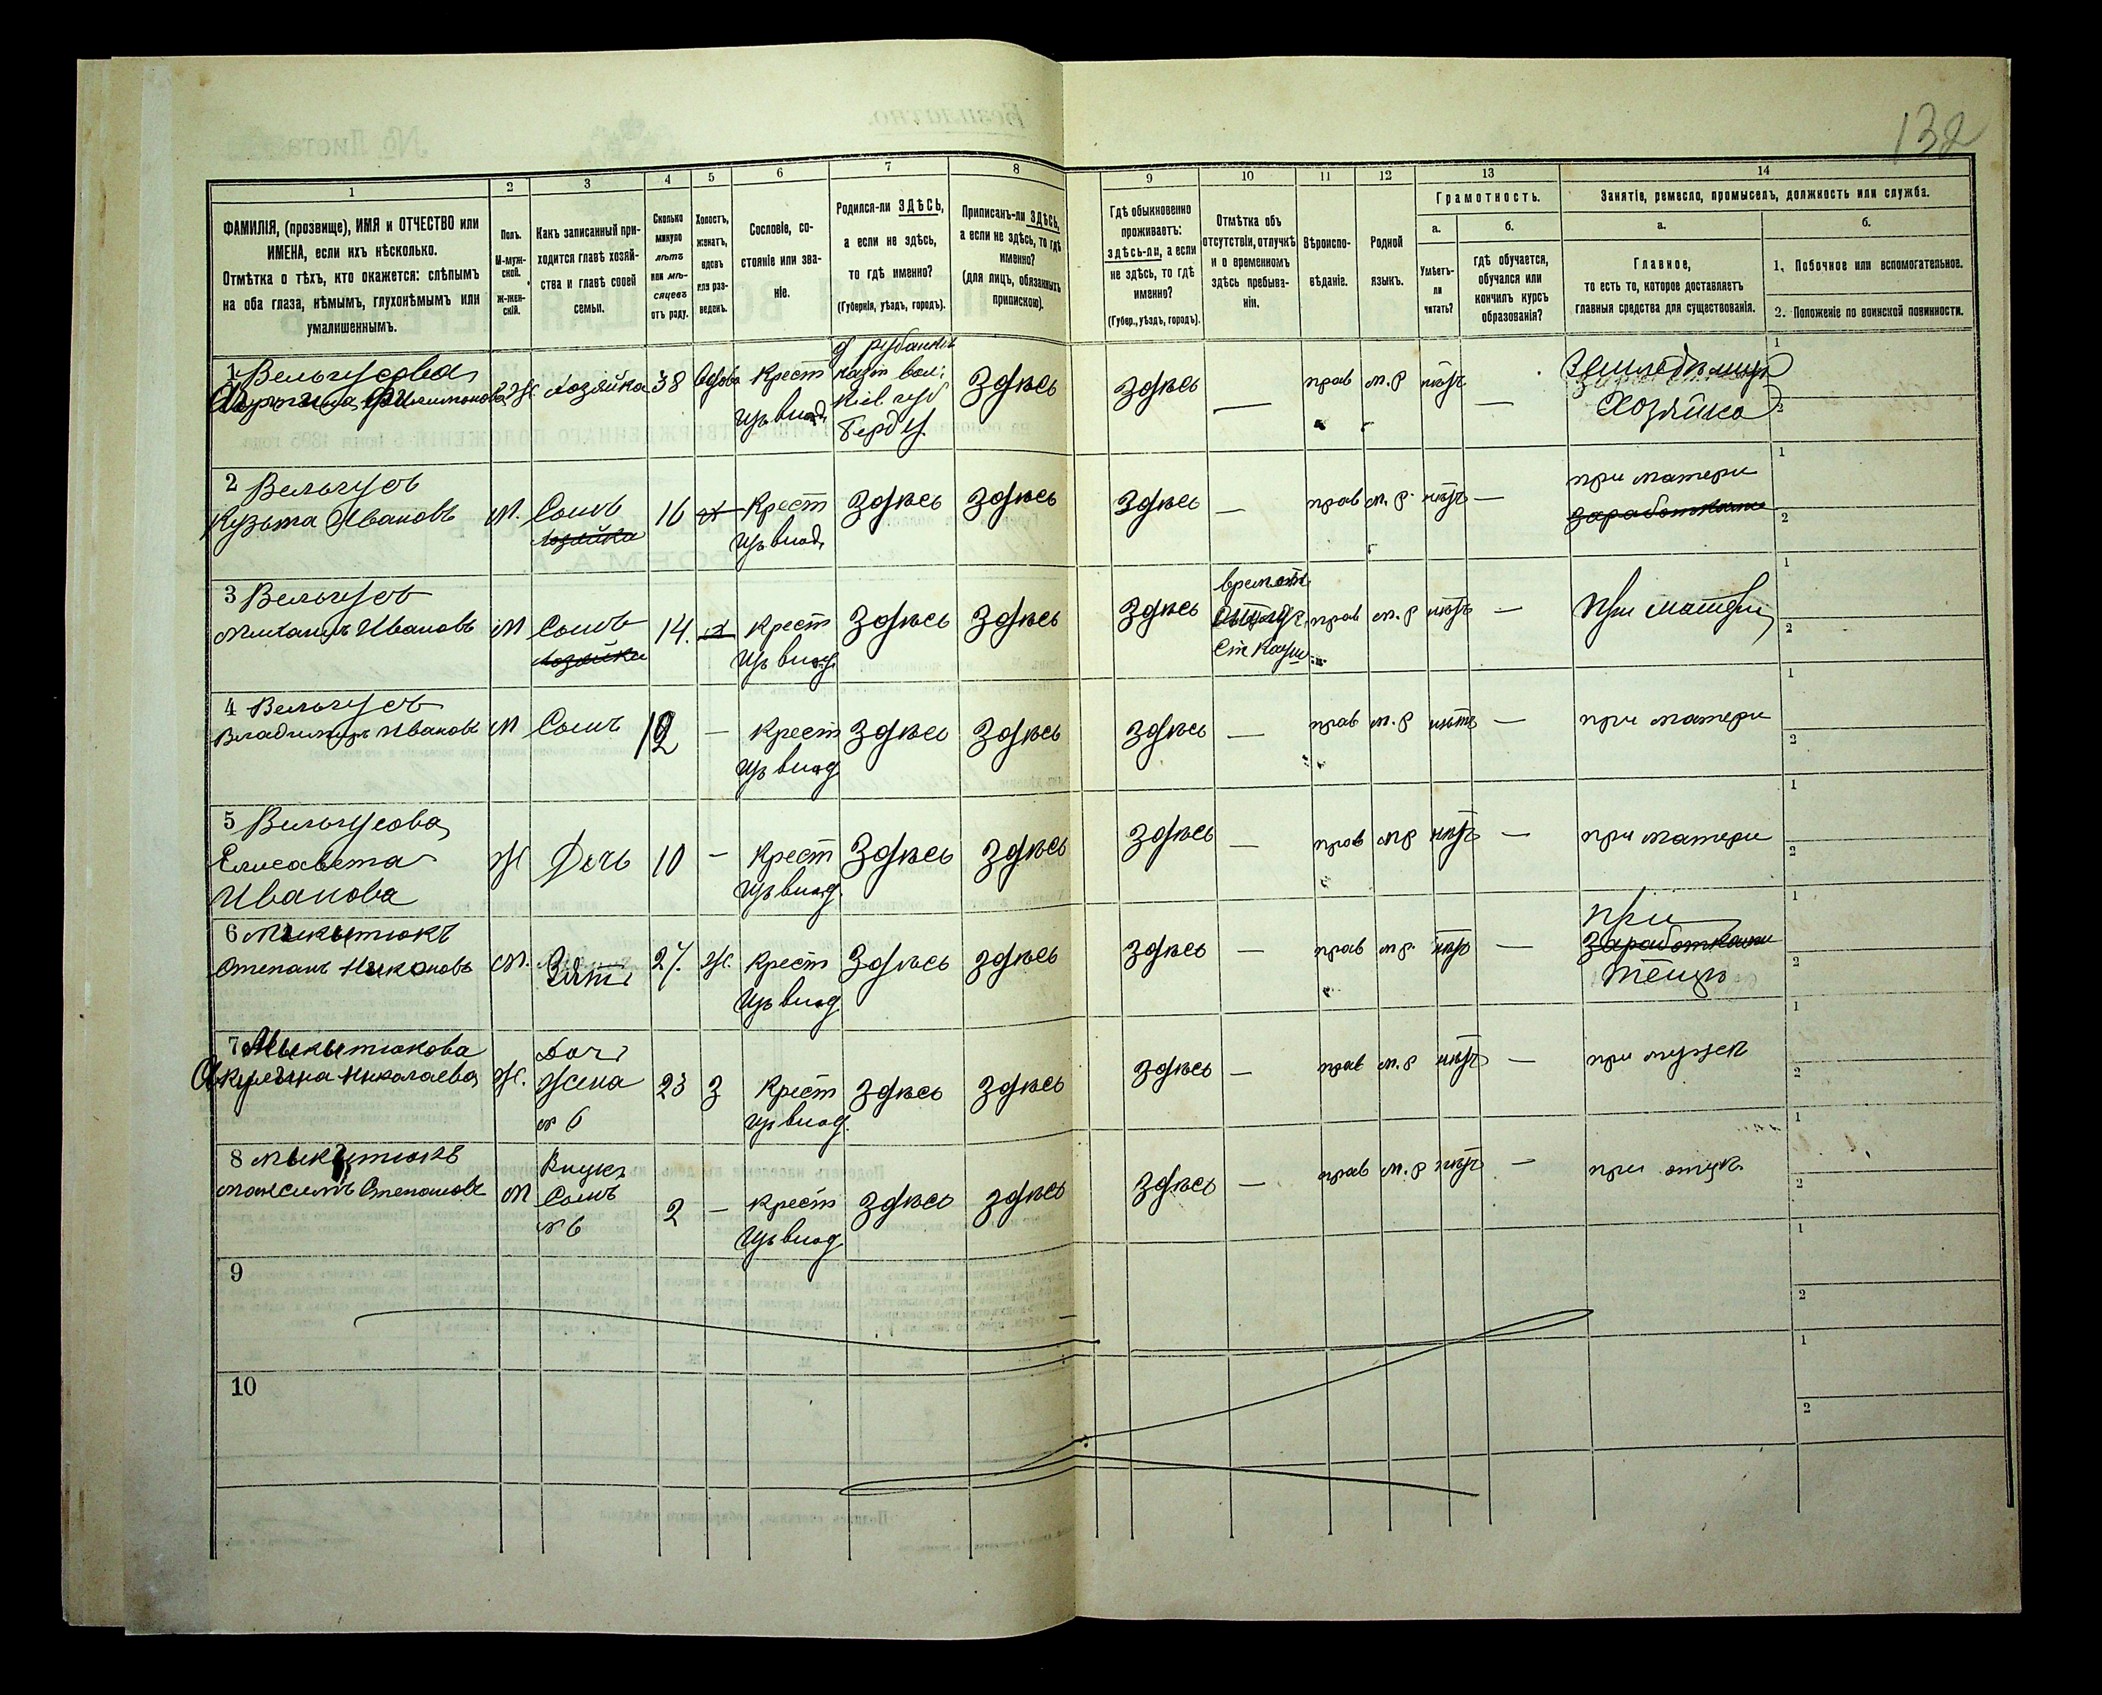 132
1
2
3
4
5
6
7
8
9
10
11
12
13
14
ФАМИЛІЯ, (прозвище), ИМЯ и ОТЧЕСТВО или
ИМЕНА, если ихъ нѣсколько.
Отмѣтка о тѣхъ, кто окажется: слѣпымъ
на оба глаза, нѣмымъ, глухонѣмымъ или
умалишеннымъ.
Полъ.
М-муж-
ской.
Ж-жен-
скій.
Какъ записанный при-
ходится главѣ хозяй-
ства и главѣ своей
семьи.
Сколько
минуло
лѣтъ
или мѣ-
сяцевъ
отъ роду.
Холостъ,
женатъ,
вдовъ
или раз-
веденъ.
Сословіе, со-
стояніе или зва-
ніе.
Родился-ли ЗДѢСЬ,
а если не здѣсь,
то гдѣ именно?
(Губернія, уѣздъ, городъ).
Приписанъ-ли ЗДѢСЬ,
а если не здѣсь, то гдѣ
именно?
(для лицъ, обязанныхъ
припискою).
Гдѣ обыкновенно
проживаетъ:
здѣсь-ли, а если
не здѣсь, то гдѣ
именно?
(Губер., уѣздъ, городъ).
Отмѣтка объ
отсутствіи, отлучкѣ
и о временномъ
здѣсь пребыва-
ніи.
Вѣроиспо-
вѣданіе.
Родной
языкъ.
Грамотность.
а.
Умѣетъ-
ли
читать?
б.
гдѣ обучается,
обучался или
кончилъ курсъ
образованія?
Занятіе, ремесло, промыселъ, должность или служба.
а.
Главное,
то есть то, которое доставляетъ
главныя средства для существованія.
б.
1. Побочное или вспомогательное.
2. Положеніе по воинской повинности.
1 Вельгусова
Филимонова Ж Хозяйка 38 Вдова Крест
изъ влад. Здѣсь Здѣсь — прав м.р нѣтъ —
Хозяйка
1
2
2 Вельгусъ
Кузьма Ивановъ М. Сынъ 16 Крест Здѣсь Здѣсь Здѣсь — прав м.р. нѣтъ — при матери
хозяйки изъ влад. заработками
1
2
3 Вельгусъ
Михаилъ Ивановъ М Сынъ 14. Крест Здѣсь Здѣсь Здѣсь прав м.р нѣтъ — При матери
хозяйки изъ влад.
1
2
4 Вельгусъ
Владимиръ Ивановъ М Сынъ 12 — Крест Здѣсь Здѣсь Здѣсь — прав м.р нѣтъ — при матери
изъ влад
1
2
5 Вельгусова
Елисавета Ж Дочь 10 — Крест Здѣсь Здѣсь Здѣсь — прав м р нѣтъ — при матери
Иванова изъ влад.
1
2
6 Микитюкъ
Степанъ Никоновъ М. Зять 27. Ж. Крест Здѣсь Здѣсь Здѣсь — прав м.р. нѣтъ — при
заработками
изъ влад тещѣ
1
2
7 Микитюкова Доч
Акулина Николаева Ж. Жена 23 З Крест Здѣсь Здѣсь Здѣсь — прав м.р нѣтъ — при мужѣ
№ 6 изъ влад.
1
2
8 Микитюкъ Внукъ
Максимъ Степановъ М Сынъ 2 — Крест Здѣсь Здѣсь Здѣсь — прав м.р нѣтъ — при отцѣ
№ 6 изъ влад
1
2
9
1
2
10
1
2